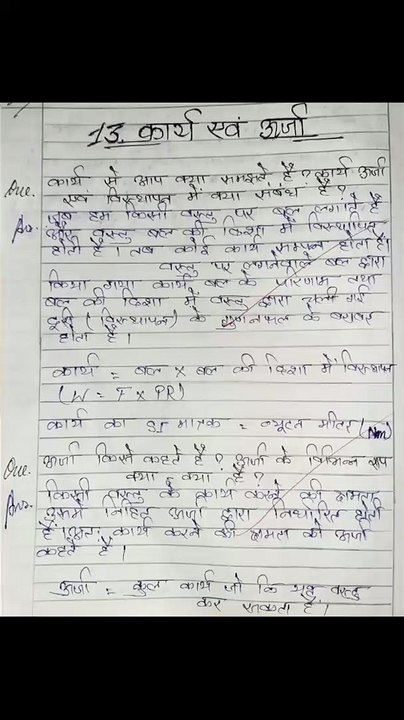 13. कार्य एवं ऊर्जा
Que. कार्य से आप क्या समझते हैं? कार्य ऊर्जा
एवं विस्थापन में क्या संबंध है?
Ans. जब हम किसी वस्तु पर बल लगाते हैं
और वस्तु बल की दिशा में विस्थापित
होती है। तब कोई कार्य सम्पन्न होता है।
वस्तु पर लगनेवाले बल द्वारा
किया गया कार्य बल के परिणाम तथा
बल की दिशा में वस्तु द्वारा चली गई
दूरी (विस्थापन) के गुणनफल के बराबर
होता है।
कार्य = बल × बल की दिशा में विस्थापन
(W = F × PR)
कार्य का SI मात्रक = न्यूटन मीटर (Nm)
Que. ऊर्जा किसे कहते हैं? ऊर्जा के विभिन्न रूप
क्या क्या हैं?
Ans. किसी वस्तु के कार्य करने की क्षमता
उसमें निहित ऊर्जा द्वारा निर्धारित होती
है। अतः कार्य करने की क्षमता को ऊर्जा
कहते हैं।
ऊर्जा = कुल कार्य जो कि वह वस्तु
कर सकता है।